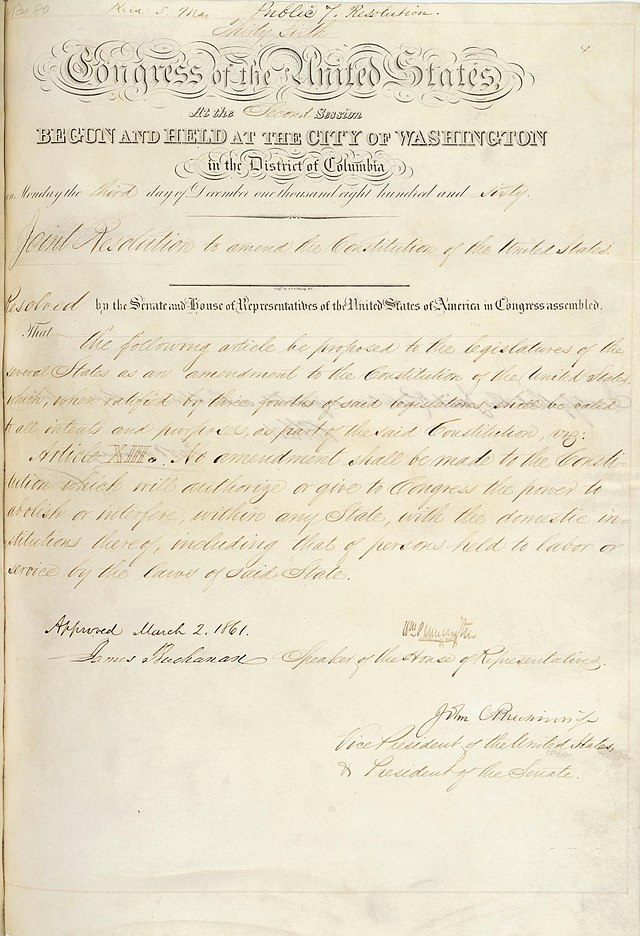 Public 7. Resolution.
Thirty Sixth
4
Congress of the United States,
At the Second Session
BEGUN AND HELD AT THE CITY OF WASHINGTON
in the District of Columbia
on Monday the third day of December one thousand eight hundred and sixty.
Joint Resolution to amend the Constitution of the United States.
Resolved by the Senate and House of Representatives of the United States of America in Congress assembled,
That
the following article be proposed to the legislatures of the
several States as an amendment to the Constitution of the United States,
which, when ratified by three-fourths of said legislatures, shall be valid,
to all intents and purposes, as part of the said Constitution, viz:
Article XIII. No amendment shall be made to the Consti-
tution which will authorize or give to Congress the power to
abolish or interfere, within any State, with the domestic in-
stitutions thereof, including that of persons held to labor or
service by the laws of said State.
Approved March 2. 1861.
James Buchanan
Wm Pennington
Speaker of the House of Representatives.
John C Breckinridge
Vice President of the United States,
& President of the Senate.